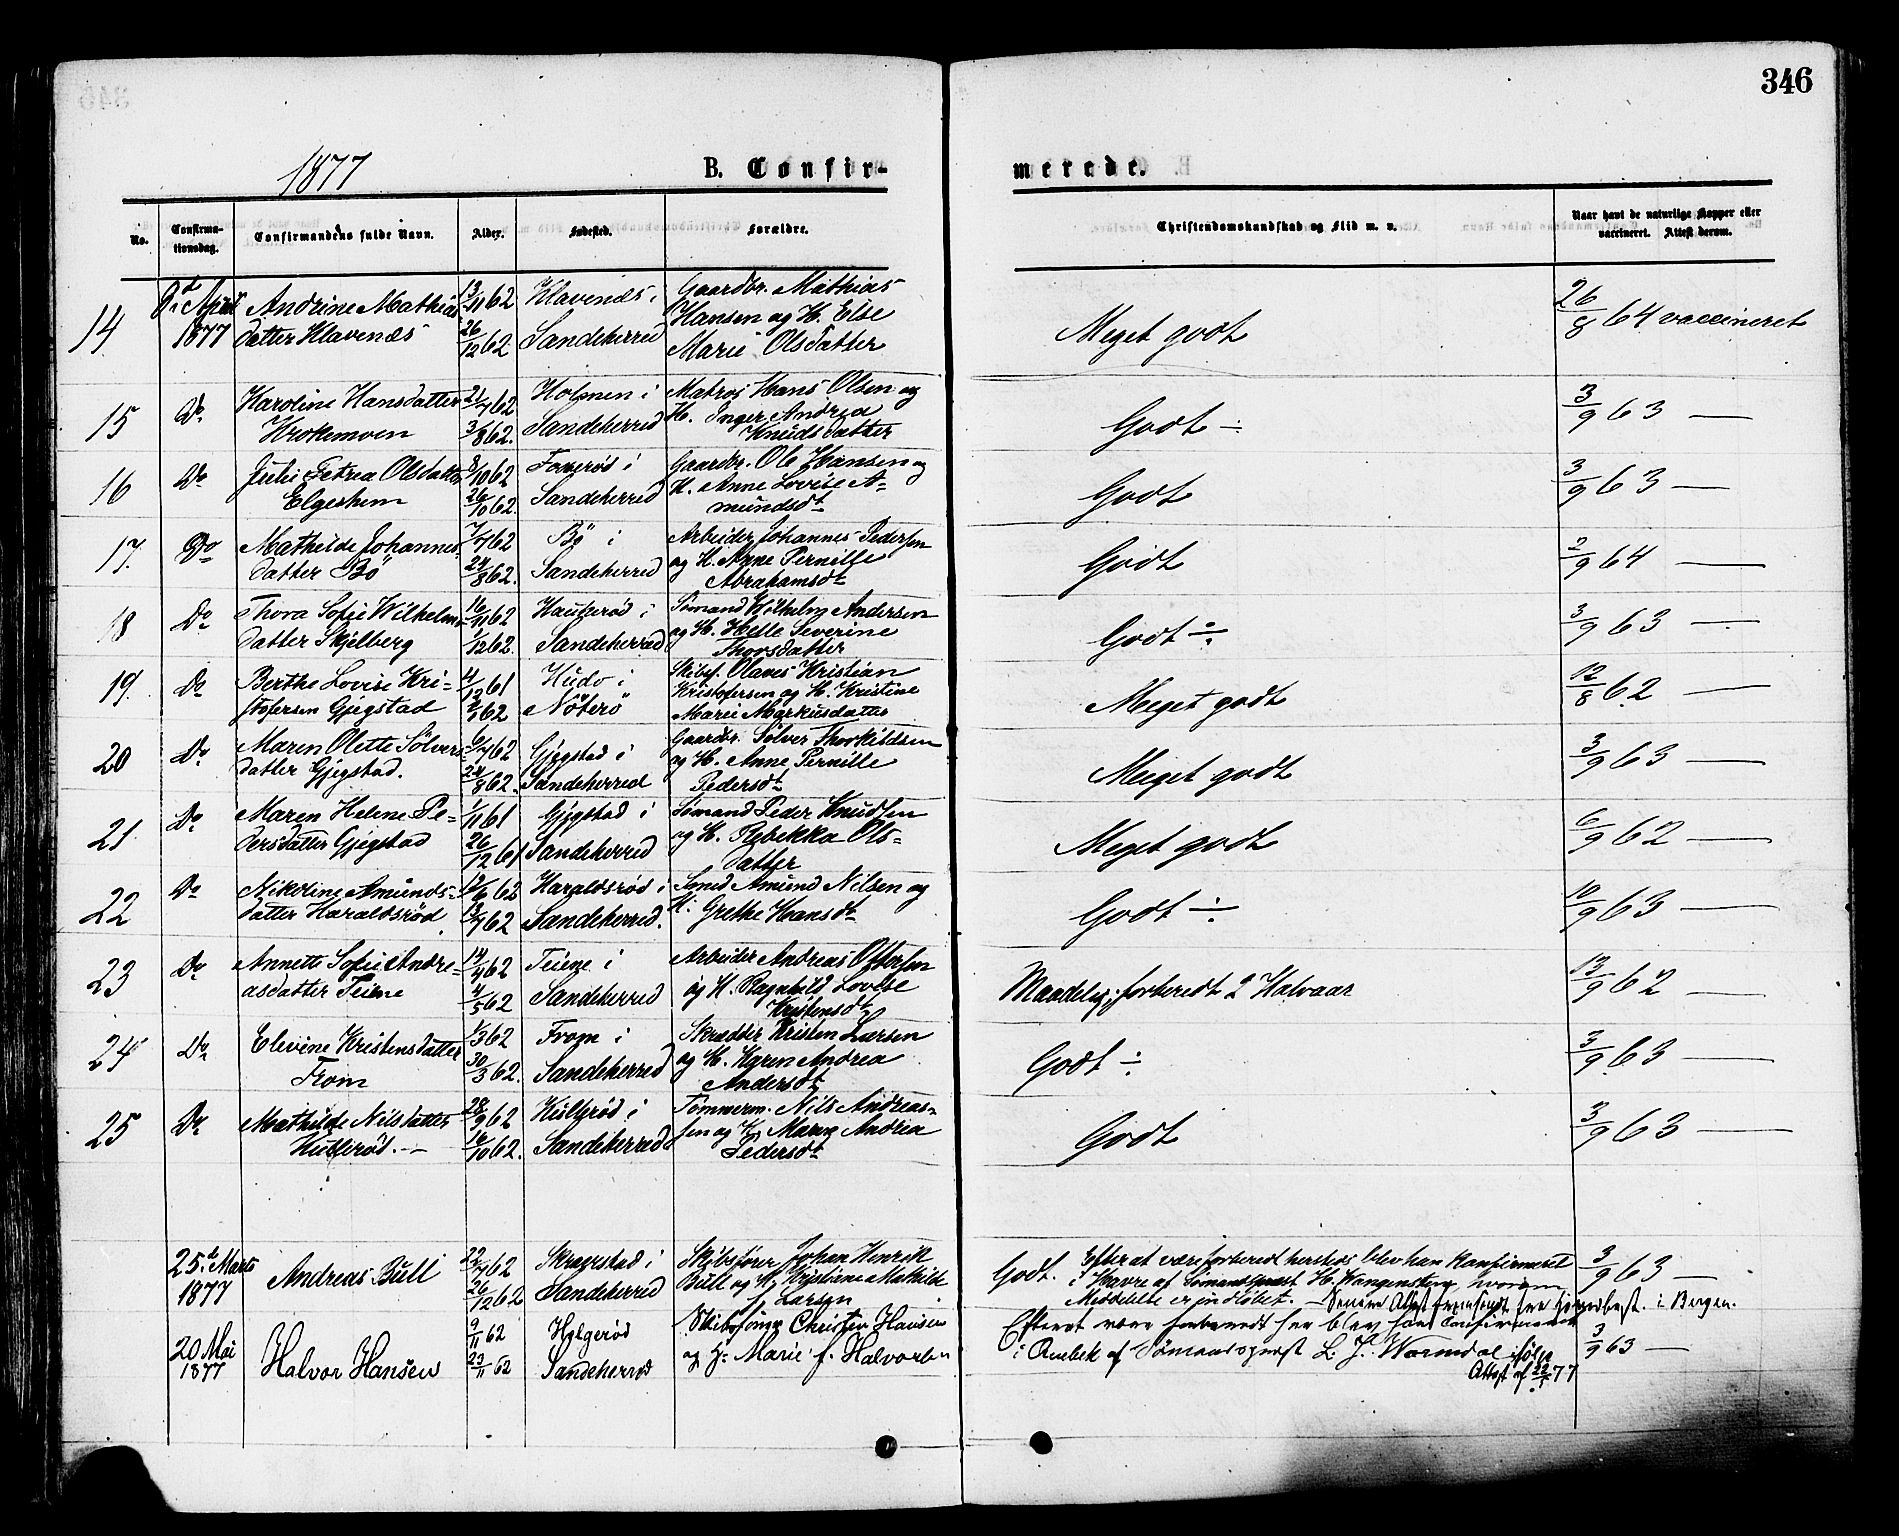 346
1877
B. Confir-
merede.
No.
Confirma-
tionsdag.
Confirmandens fulde Navn.
Alder.
Indested.
Forældre.
Christendomskundskab og Flid m. v.
Naar havt de naturlige Kopper eller
vaccineret. Attest derom.
14 April 1877
Andrine Mathias
datter Klavenæs
13/11 62
26/12 62
Klavenæs i
Sandeherred
Gaardbr. Mathias
Hansen og H. Else
Marie Olsdatter
Meget godt
26/8 64 vaccineret
15 Do
Karoline Hansdatter
Krokemoen
21/7 62
3/8 62.
Holmen i
Sandeherred
Matros Hans Olsen og
H. Inger Andrea
Knudsdatter
Godt ÷
3/9 63 —
16 Do
Julie Petrea Olsdatter
Elgeshem
8/10 62
26/10 62.
Foxerød i
Sandeherred
Gaardbr. Ole Hansen og
H. Anne Lovise A-
mundsdt
Godt
3/9 63 —
17. Do
Mathilde Johannes
datter Bö
7/7 62
24/8 62.
Bö i
Sandeherred
Arbeider Johannes Pedersen
og H. Anne Pernille
Abrahamsdt
Godt
2/9 64 —
18 Do
Thora Sofie Wilhelms
datter Skjelberg
16/11 62
1/12 62.
Haukerød i
Sandeherred
Sömand Wilhelm Andersen
og H. Helle Severine
Thorsdatter
Godt ÷
3/9 63 —
19. Do
Berthe Lovise Kri-
stofersen Gjegstad
4/12 61
62
Hudö i
Nöterö
Skibsf. Olaves Kristian
Kristofersen og H. Kristine
Marie Markusdatter
Meget godt
12/8 62 —
20 Do
Maren Olette Sölvers
datter Gjegstad.
6/7 62
24/8 62.
Gjegstad i
Sandeherred
Gaardbr. Sölver Thorkildsen
og H. Anne Pernille
Pedersdt
Meget godt
3/9 63 —
21. Do
Maren Helene Pe-
dersdatter Gjegstad
1/11 61
26/12 61
Gjegstad i
Sandeherred
Sömand Peder Knudsen
og H. Rebekka Ols-
datter
Meget godt
6/9 62 —
22 Do
Nikoline Amunds-
datter Haraldsröd
62
13/7 62
Haraldsröd i
Sandeherred.
Smed Amund Nilsen og
H. Grethe Hansdt
Godt ÷
10/9 63 —
23 Do
Annette Sofie Andre-
asdatter Teiene
14/4 62
4/5 62
Teiene i
Sandeherred
Arbeider Andreas Ottersen
og H. Ragnhild Lovise
Kristensdt
Maadelig; forberedt 2 Halvaar
13/9 62 —
24 Do
Elevine Kristensdatter
From
1/3 62
30/3 62.
From i
Sandeherred
Skrædder Kristen Larsen
og H. Karen Andrea
Andersdt
Godt ÷
3/9 63 —
25 Do
Mathilde Nilsdatter
Kulleröd. —
28/9 62
16/10 62.
Kulleröd i
Sandeherred
Tömmerm. Nils Andreas-
sen og H. Maren Andrea
Pedersdt
Godt
3/9 63 —
25d Marts
1877
Andreas Bull
22/7 62
26/12 62
Skragstad i
Sandeherred
Skibsförer Johan Henrik
Bull og H. Kristiane Mathilde
f. Larsen
Godt. Efter at være forberedt herstæds blev han konfirmeret
i Havre af Sömandspræst H. Wangensteen hvorom
Meddelelse er indlöbet. — Senere Attest fremsendt fra i Bergen.
3/9 63 —
20 Mai
1877
Halvor Hansen
9/11 62
23/11 62
Helgeröd
Sandeherred
Skibstömm. Christen Hansen
og H. Marie f. Halvorsen
Efterat være forberedt her blev han Confirmeret
i af Sömandspræst L. J. Wormdal ifölge
Attest af 22/5 77
3/9 63 —